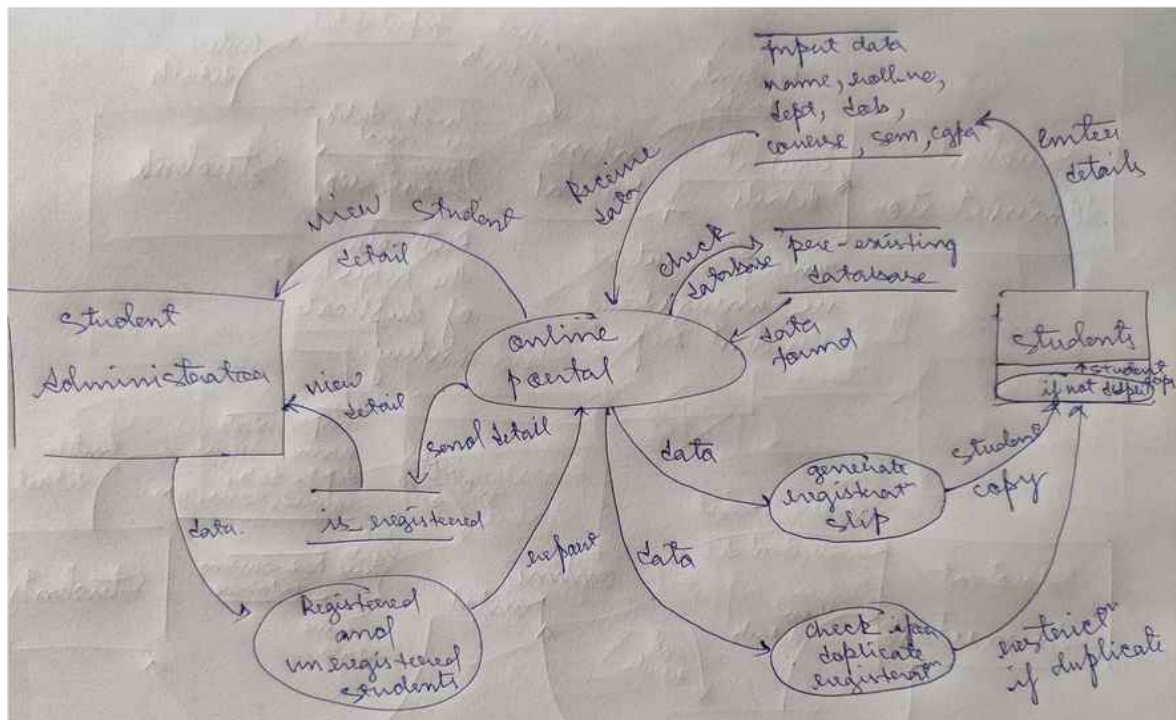 input data
name, rollno,
dept, dob,
course, sem, cgpa
enter
details
Receive
data
view student
detail
check
database
pre-existing
database
data
found
Student
Administration
online
portal
students
student
if not
view
detail
send detail
is_registered
data
generate
registratⁿ
slip
student
copy
data.
report
data
Registered
and
unregistered
students
check if
duplicate
registratⁿ
restrictⁿ
if duplicate